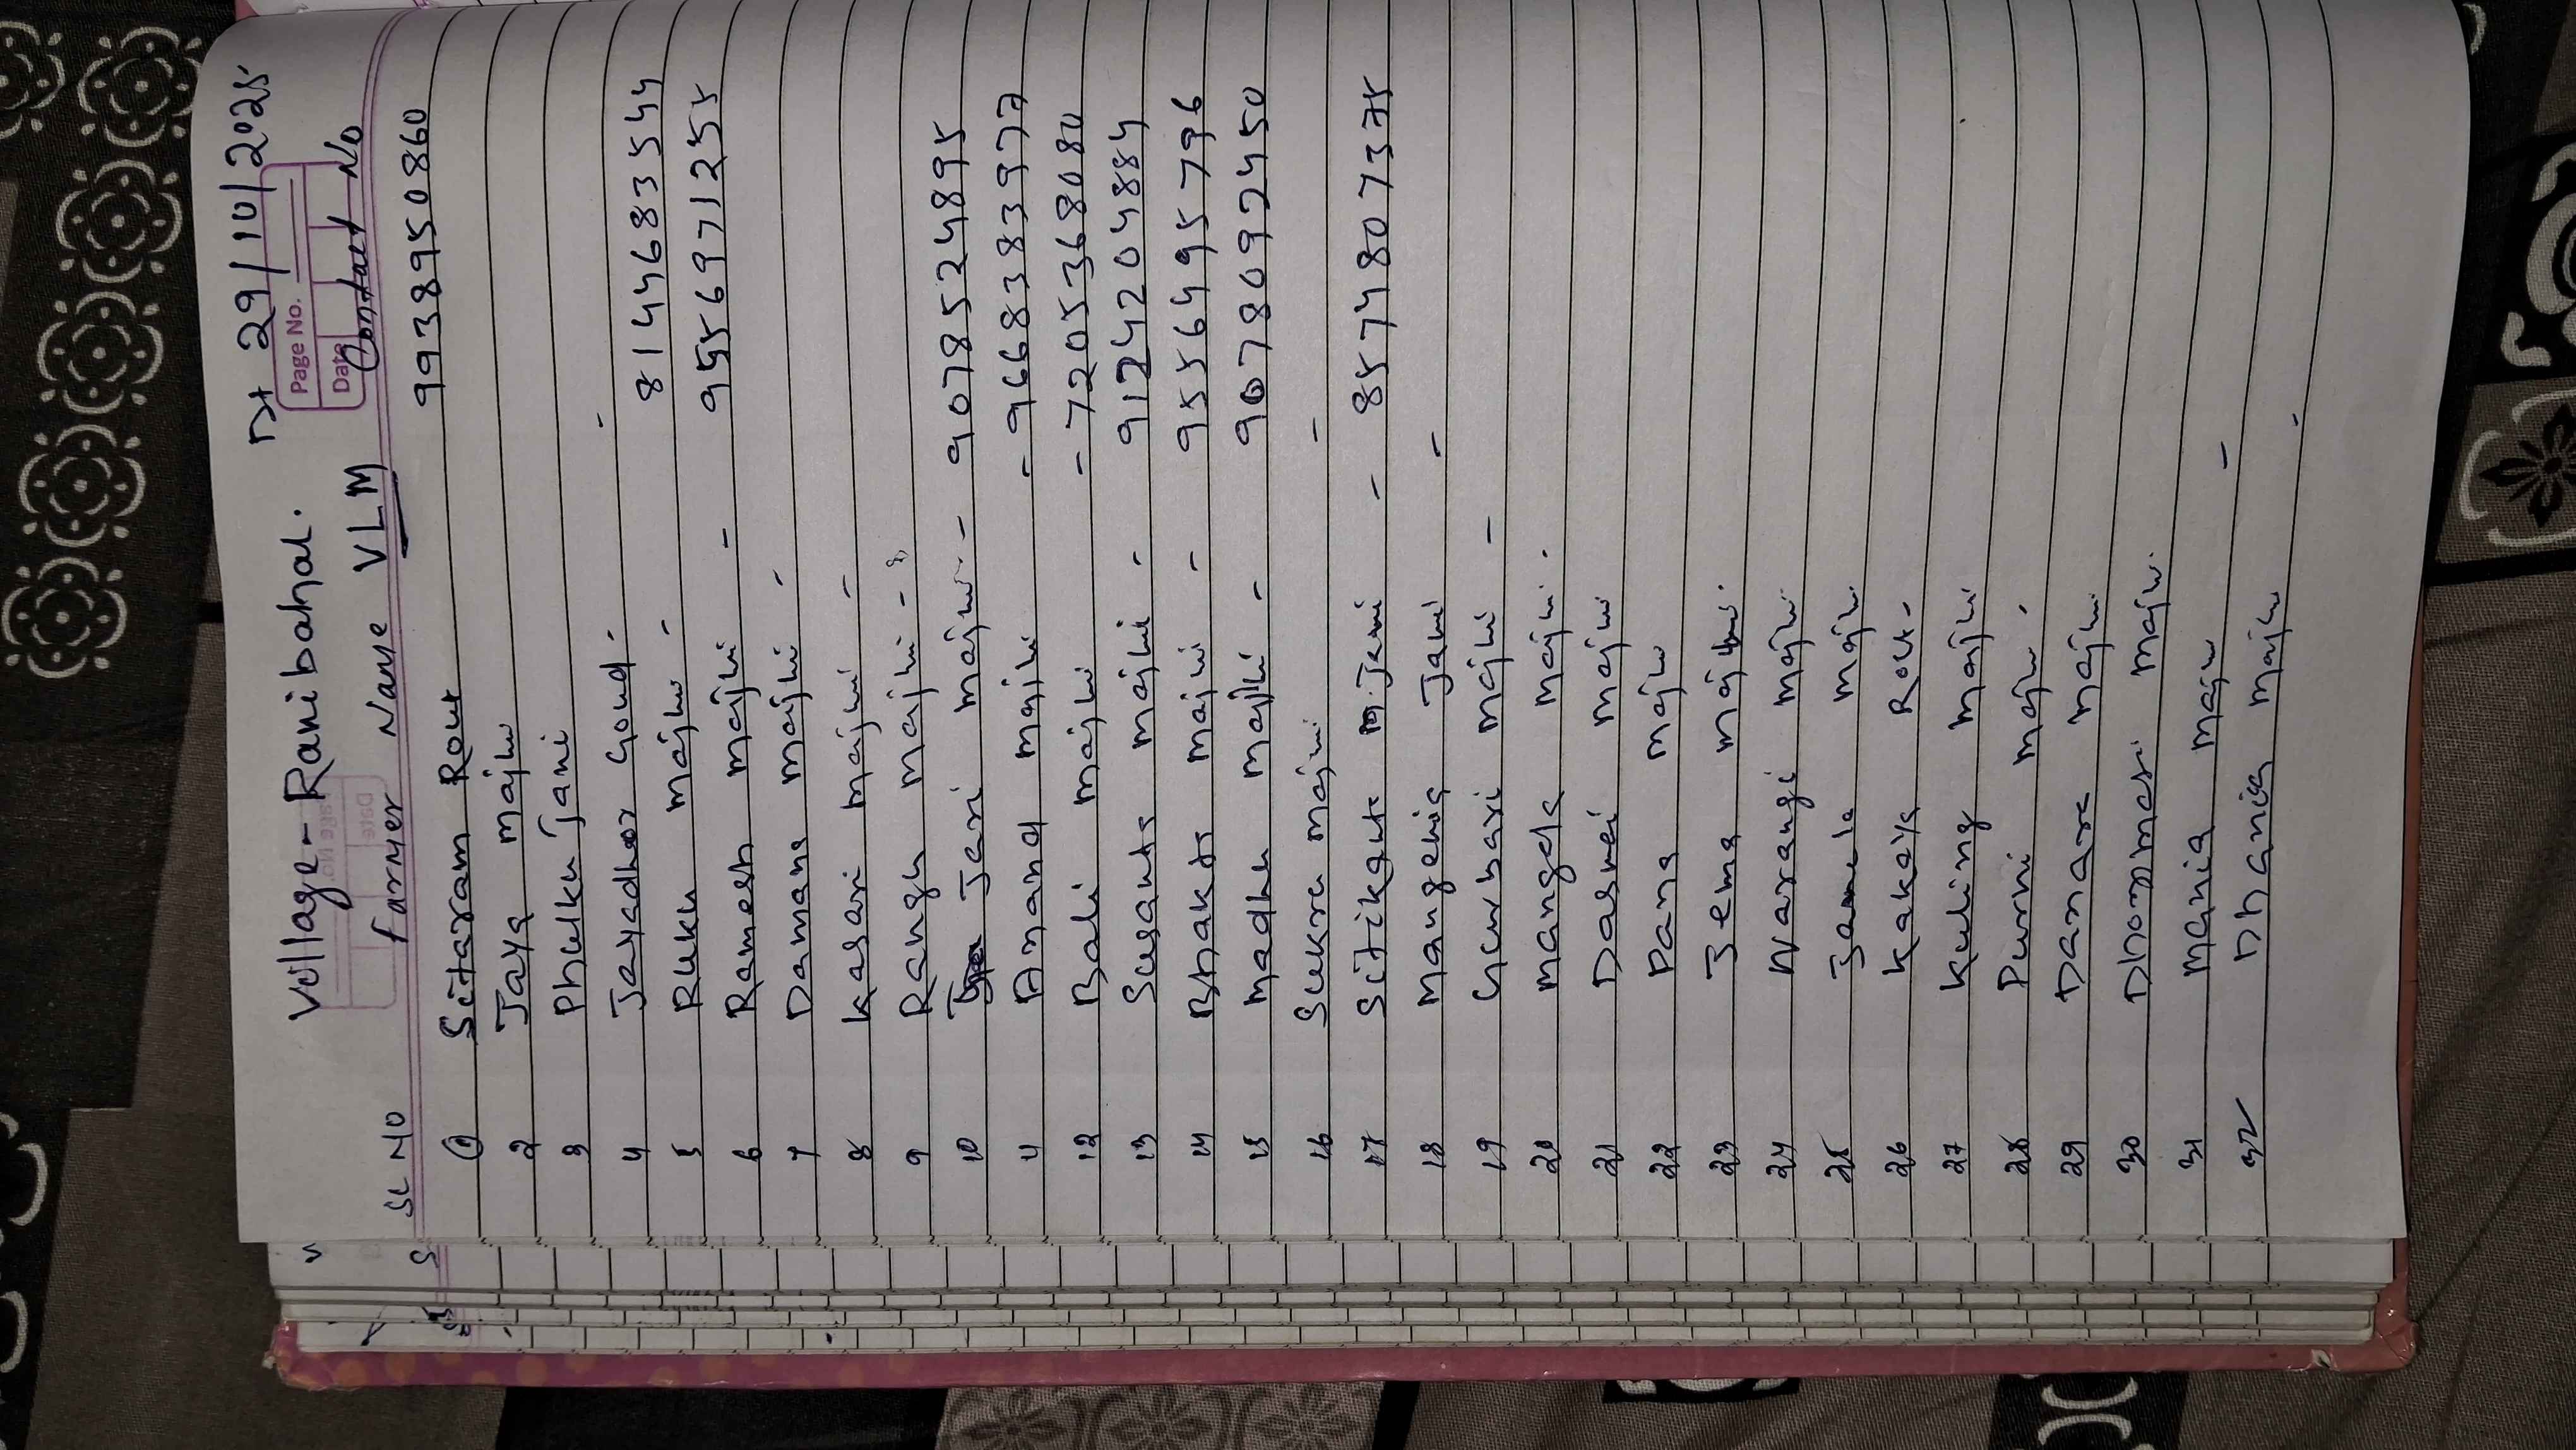 Dt 29/10/2025
Village - Ranibahal.
Page No.
Date
SL NO Farmer Name VLM Contact No
1 Sitaram Rout 9938950860
2 Jaya Majhi
3 Phulku Jani -
4 Jayadhar Goud - 8144683544
5 Ruku Majhi - 9556971255
6 Ramesh Majhi -
7 Damana Majhi -
8 Kasari Majhi -
9 Rangu Majhi -
10 Jani Majhi - 9078524895
11 Anand Majhi - 9668383977
12 Bali Majhi - 7205368080
13 Susanta Majhi - 9124204884
14 Bhakta Majhi - 9556495796
15 Madhu Majhi - 9078092450
16 Sukra Majhi -
17 Sitikanta Jani - 8574807375
18 Jani -
19 Gurbari Majhi -
20 Mangala Majhi -
21 Dasmi Majhi
22 Pana Majhi
23 Jema Majhi
24 Narangi Majhi
25 Majhi
26 Rout -
27 Majhi
28 Purni Majhi -
29 Majhi
30 Majhi
31 Mania Majhi -
32 Dhania Majhi -